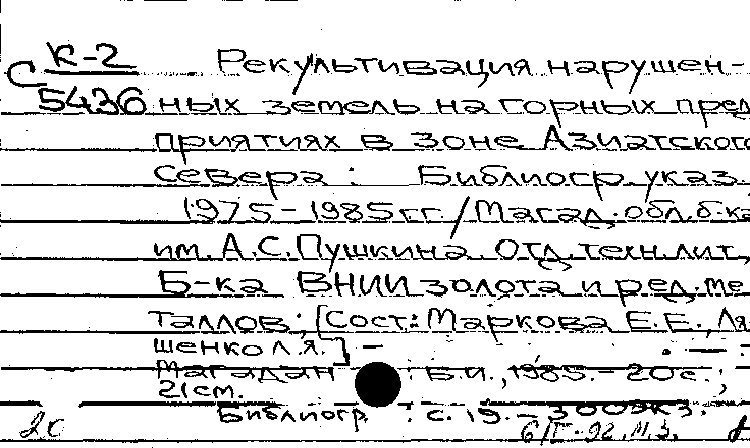 К-2 Рекультивация нарушен-
С 5436 ных земель на горных пред
приятиях в зоне Азиатского
Севера : Библиогр. указ.
1975-1985 гг. / Магад. обл. б-ка
им. А.С. Пушкина. Отд. техн. лит.,
Б-ка ВНИИ золота и ред. ме
таллов; [Сост.: Маркова Е.Е., Ля
шенко Л.Я.] -
Магадан : Б.и., 1985. - 20 с. ;
21 см.
Библиогр. : с. 19. - 300 экз.
20 6/IV-92. М.З.